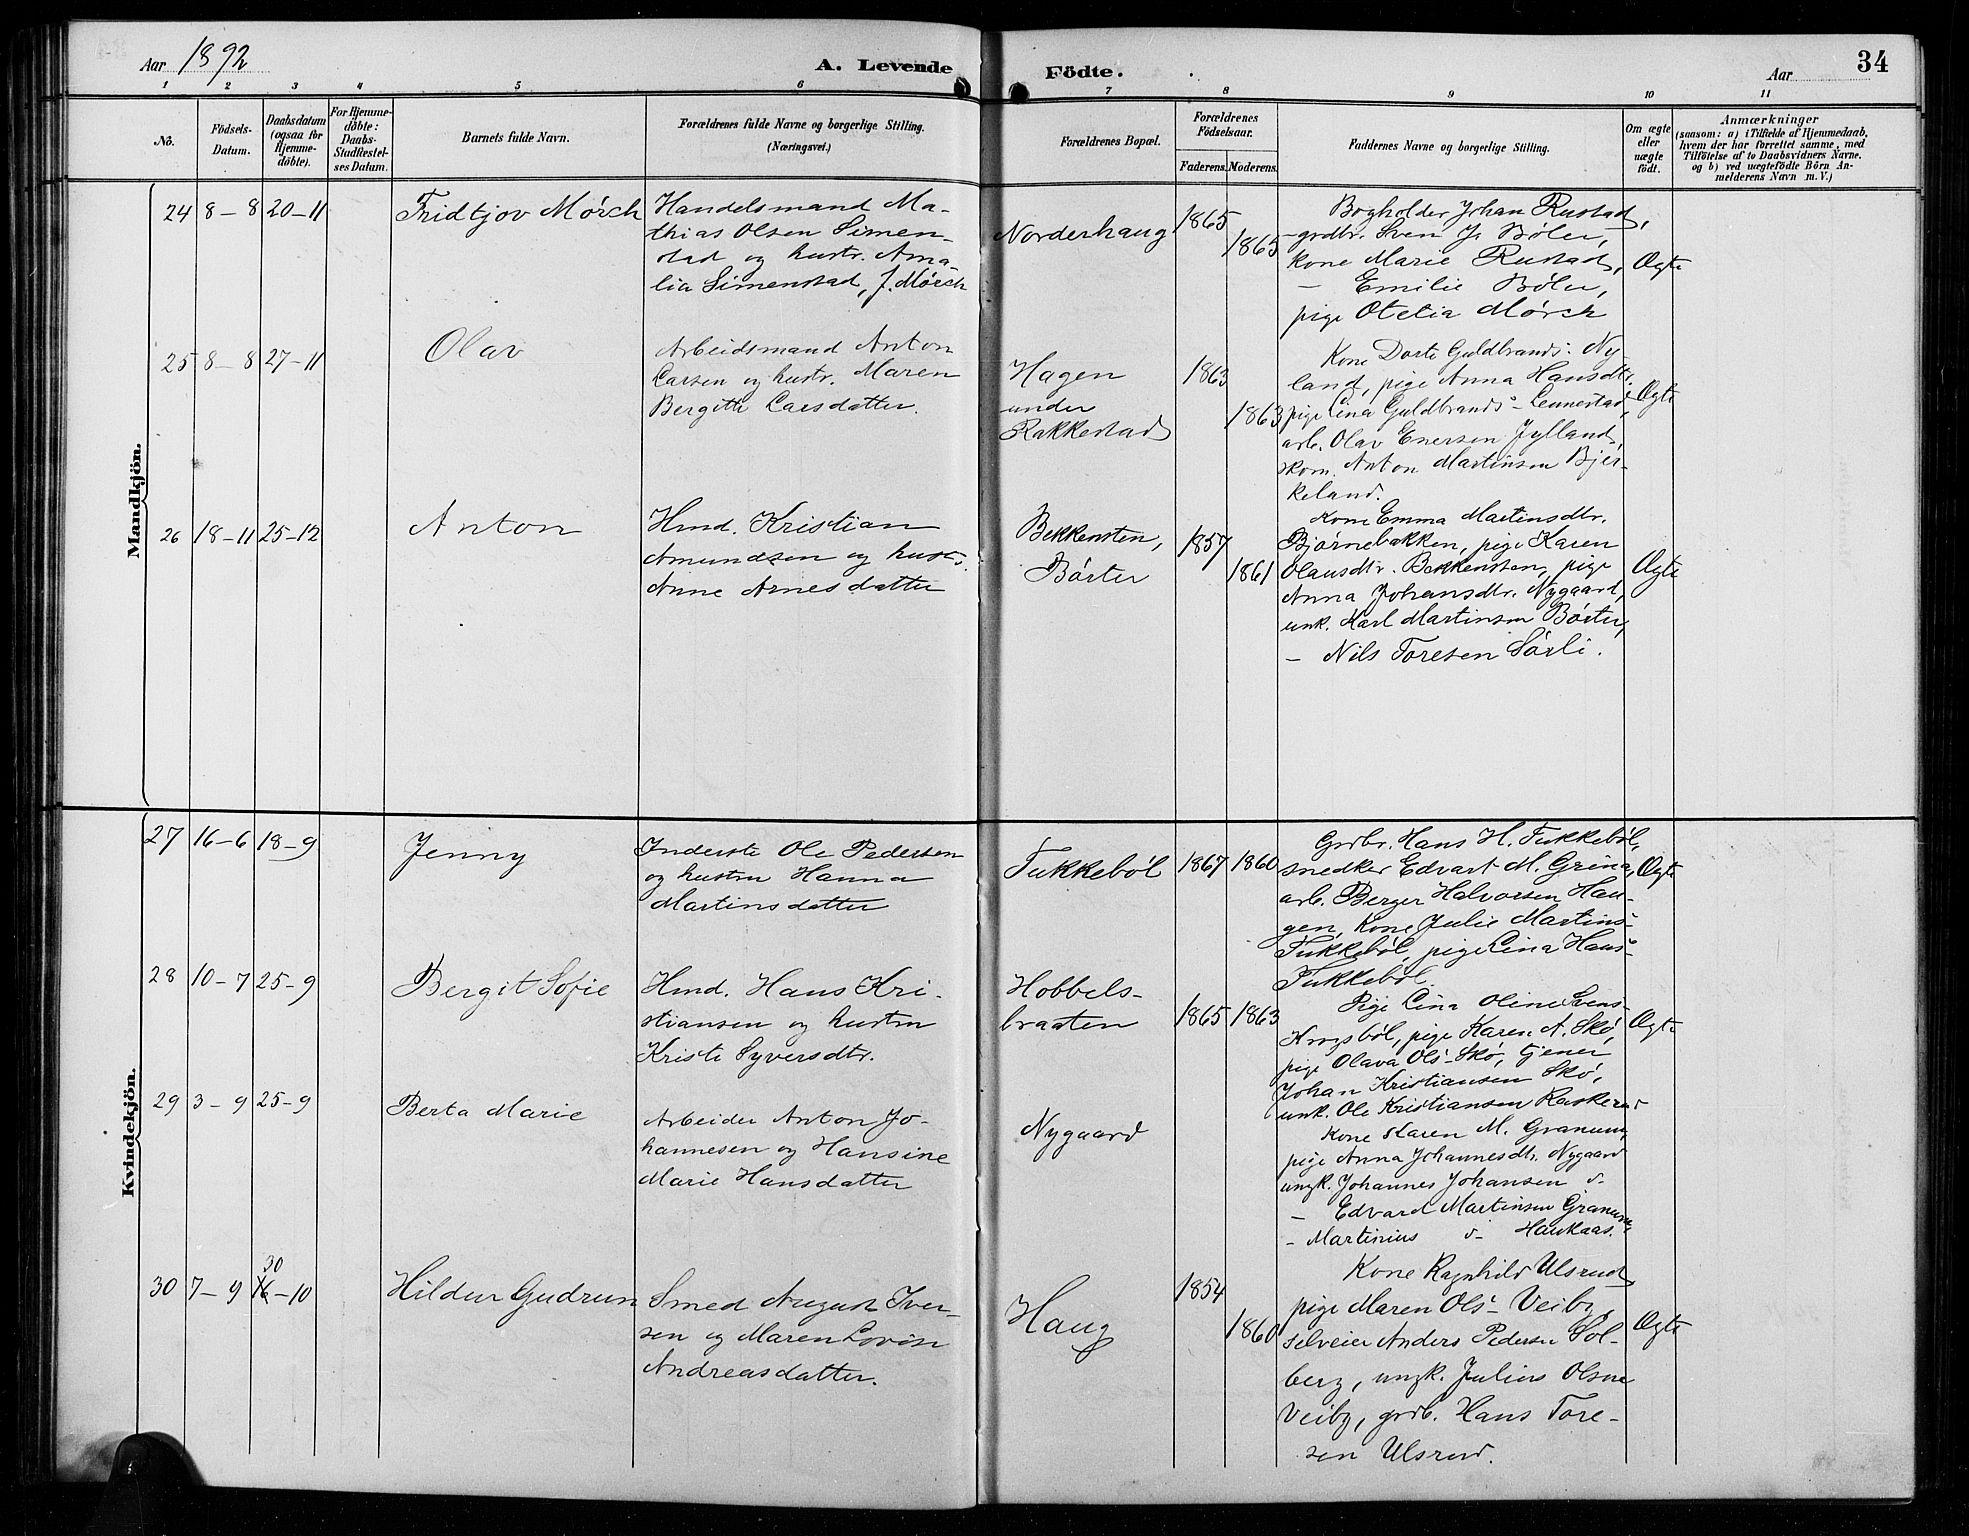 Aar 1892
A. Levende Födte.
Aar
34
1 2 3 4 5 6 7 8 9 10 11
No.
Födsels-
Datum.
Daabsdatum
(ogsaa for
Hjemme-
döbte).
For Hjemme-
döbte:
Daabs-
Stadfæstel-
ses Datum.
Barnets fulde Navn.
Forældrenes fulde Navne og borgerlige Stilling.
(Næringsvei.)
Forældrenes Bopæl.
Forældrenes
Födselsaar.
Faderens. Moderens.
Faddernes Navne og borgerlige Stilling.
Om ægte
eller
uægte
født.
Anmærkninger
(saasom: a) i Tilfælde af Hjemmedaab,
hvem der har forrettet samme, med
Tilföielse af to Daabsvidners Navne.
og b) ved uægtefödte Börn An-
melderens Navn m.V.)
Mandkjön.
24 8-8 20-11
Fridtjov Mørch
Handelsmand Ma-
thias Olsen Simen-
stad og hustr. Ama-
lia Simenstad, f. Mørch
Norderhaug
1865
1865
Bogholder Johan Rustad,
grdbr. Sven J. Bøler,
kone Marie Rustad,
— Emilie Bøler,
pige Otelia Mørch
Ægte
25 8-8 27-11
Olav
Arbeidsmand Anton
Larsen og hustr. Maren
Bergitte Larsdatter.
Hagen
under
Rakkestad
1863
1863
Kone Dorte Guldbrands: Ny-
land, pige Anna Hansdtr.
pige Lina Guldbrands- Lennestad,
arb. Olav Enersen Jylland,
skom. Anton Martinsen Bjer-
keland.
Ægte
26 18-11 25-12
Anton
Hmd. Kristian
Amundsen og hustr.
Anne Arnesdatter
Bekkensten,
Børter
1857
1861
Kone Emma Martinsdtr.
Bjørnebakken, pige Karen
Olausdtr. Bekkensten, pige
Anna Johansdtr. Nygaard,
unk. Karl Martinsen Børter,
— Nils Toresen Sørli.
Ægte
Kvindekjön.
27 16-6 18-9
Jenny
Inderste Ole Pedersen
og hustru Hanna
Martinsdatter
Tukkebøl
1867 1860
Grdbr. Hans H. Tukkebøl,
snedker Edvart M. Grina,
arb. Berger Halvorsen Hau-
gen, Kone Julie Martins-
Tukkebøl, pige Lina Hans-
Tukkebøl
Ægte
28 10-7 25-9
Bergit Sofie
Hmd. Hans Kri-
stiansen og hustru
Kristi Syversdtr.
Hobbels-
braaten
1865 1863
Pige Lina Oline Svens-
Krogsbøl, pige Karen A. Skø,
pige Olava Ols- Skø, tjener
Johan Kristiansen Skø,
unk. Ole Kristiansen Raskerud
Ægte
29 3-9 25-9
Berta Marie
Arbeider Anton Jo-
hannesen og Hansine
Marie Hansdatter
Nygaard
Kone Karen M. Granum,
pige Anna Johannesdtr. Nygaard
ungk. Johannes Johansen d-
— Edvard Martinsen Granum,
— Martinius d- Haukaas.
30 7-9 30 16-10
Hildur Gudrun
Smed August Iver-
sen og Maren Lovise
Andreasdatter.
Haug
1854
1860
Kone Ragnhild Ulsrud
pige Maren Ols- Veiby,
selveier Anders Pedersen Sol-
berg, ungk. Julius Olsen
Veiby, grdb. Hans Tore-
sen Ulsrud.
Ægte